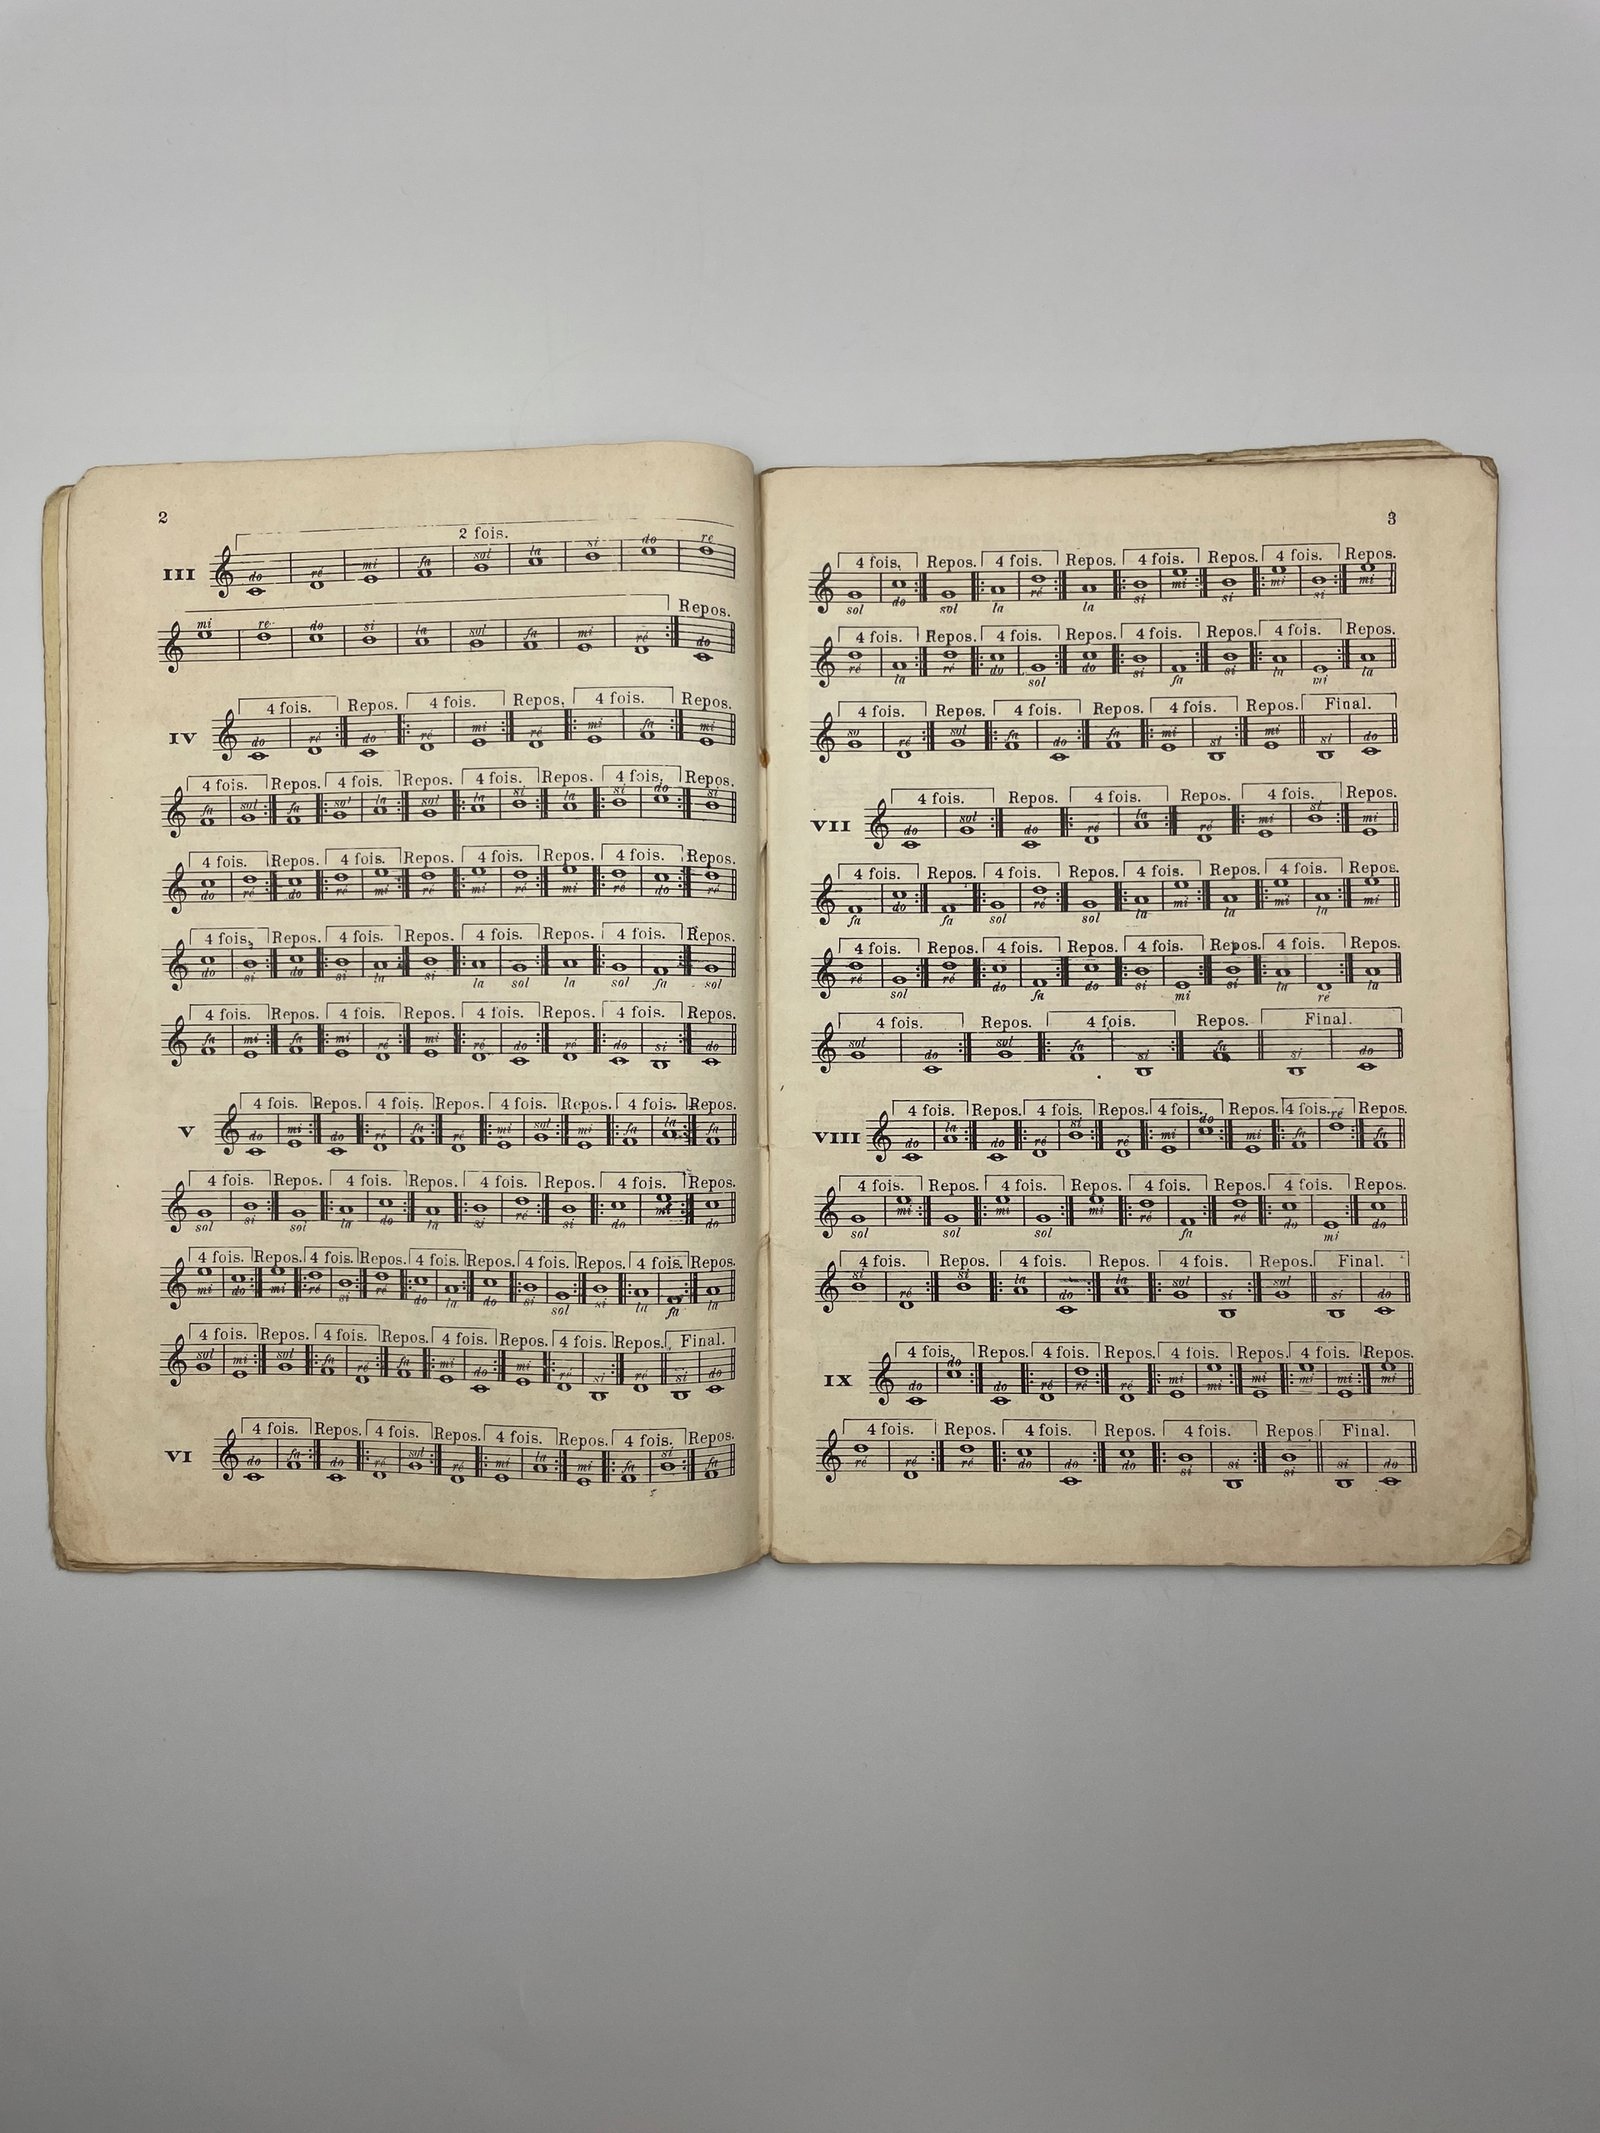 2
2 fois.
III do ré mi fa sol la si do re
Repos.
mi re do si la sol fa mi ré do
4 fois. Repos. 4 fois. Repos. 4 fois. Repos.
IV do ré do ré mi ré mi fa mi
4 fois. Repos. 4 fois. Repos. 4 fois. Repos. 4 fois. Repos.
fa sol fa sol la sol la si la si do si
4 fois. Repos. 4 fois. Repos. 4 fois. Repos. 4 fois. Repos.
do ré do ré mi ré mi ré mi ré do ré
4 fois. Repos. 4 fois. Repos. 4 fois. Repos. 4 fois. Repos.
do si do si la si la sol la sol fa sol
4 fois. Repos. 4 fois. Repos. 4 fois. Repos. 4 fois. Repos.
fa mi fa mi ré mi ré do ré do si do
4 fois. Repos. 4 fois. Repos. 4 fois. Repos. 4 fois. Repos.
V do mi do ré fa ré mi sol mi fa la fa
4 fois. Repos. 4 fois. Repos. 4 fois. Repos. 4 fois. Repos.
sol si sol la do la si ré si do mi do
4 fois. Repos. 4 fois. Repos. 4 fois. Repos. 4 fois. Repos. 4 fois. Repos.
mi do mi ré si ré do la do si sol si la fa la
4 fois. Repos. 4 fois. Repos. 4 fois. Repos. 4 fois. Repos. Final.
sol mi sol fa ré fa mi do mi ré si ré si do
4 fois. Repos. 4 fois. Repos. 4 fois. Repos. 4 fois. Repos.
VI do fa do ré sol ré mi la mi fa si fa
3
4 fois. Repos. 4 fois. Repos. 4 fois. Repos. 4 fois. Repos.
sol do sol la ré la si mi si mi si mi
4 fois. Repos. 4 fois. Repos. 4 fois. Repos. 4 fois. Repos.
ré la ré do sol do si fa si la mi la
4 fois. Repos. 4 fois. Repos. 4 fois. Repos. Final.
so ré sol fa do fa mi si mi si do
4 fois. Repos. 4 fois. Repos. 4 fois. Repos.
VII do sol do ré la ré mi si mi
4 fois. Repos. 4 fois. Repos. 4 fois. Repos. 4 fois. Repos.
fa do fa sol ré sol la mi la mi la mi
4 fois. Repos. 4 fois. Repos. 4 fois. Repos. 4 fois. Repos.
ré sol ré do fa do si mi si la ré la
4 fois. Repos. 4 fois. Repos. Final.
sol do sol fa si fa si do
4 fois. Repos. 4 fois. Repos. 4 fois. Repos. 4 fois. Repos.
VIII do la do ré si ré mi do mi fa ré fa
4 fois. Repos. 4 fois. Repos. 4 fois. Repos. 4 fois. Repos.
sol mi sol mi sol mi ré fa ré do mi do
4 fois. Repos. 4 fois. Repos. 4 fois. Repos. Final.
si ré si la do la sol si sol si do
4 fois. Repos. 4 fois. Repos. 4 fois. Repos. 4 fois. Repos.
IX do do do ré ré ré mi mi mi mi mi mi
4 fois. Repos. 4 fois. Repos. 4 fois. Repos Final.
ré ré ré do do si si si si do